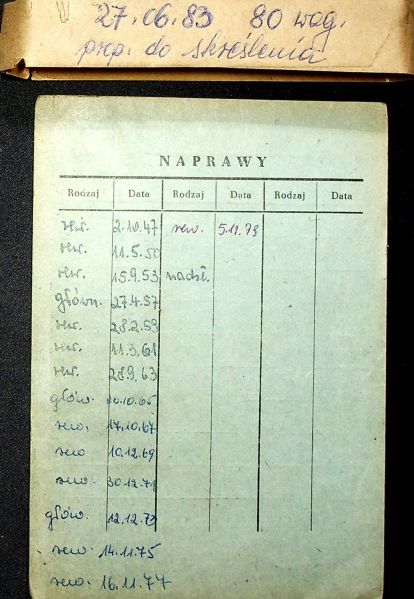 27.06.83 80 wag.
prop. do skreślenia
NAPRAWY
Rodzaj Data Rodzaj Data Rodzaj Data
rew. 2.10.47 rew. 5.11.79
rew. 11.5.50
rew. 15.9.53 nadzl.
główn. 27.4.57
rew. 28.2.59
rew. 11.3.61
rew. 28.9.63
głów. 20.10.65
rew. 17.10.67
rew 10.12.69
rew. 30.12.71
głów. 12.12.73
rew. 14.11.75
rew. 16.11.77